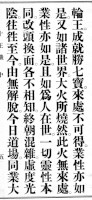 輪王成就勝七寶來處不可得業性亦如
是又如諸世界大火所燒然此火無來處
業性亦如是且如爲人在世一切靈性本
同改頭換面各不相知終朝混雜虛度光
陰往往至今日無解脫今日道場同業大